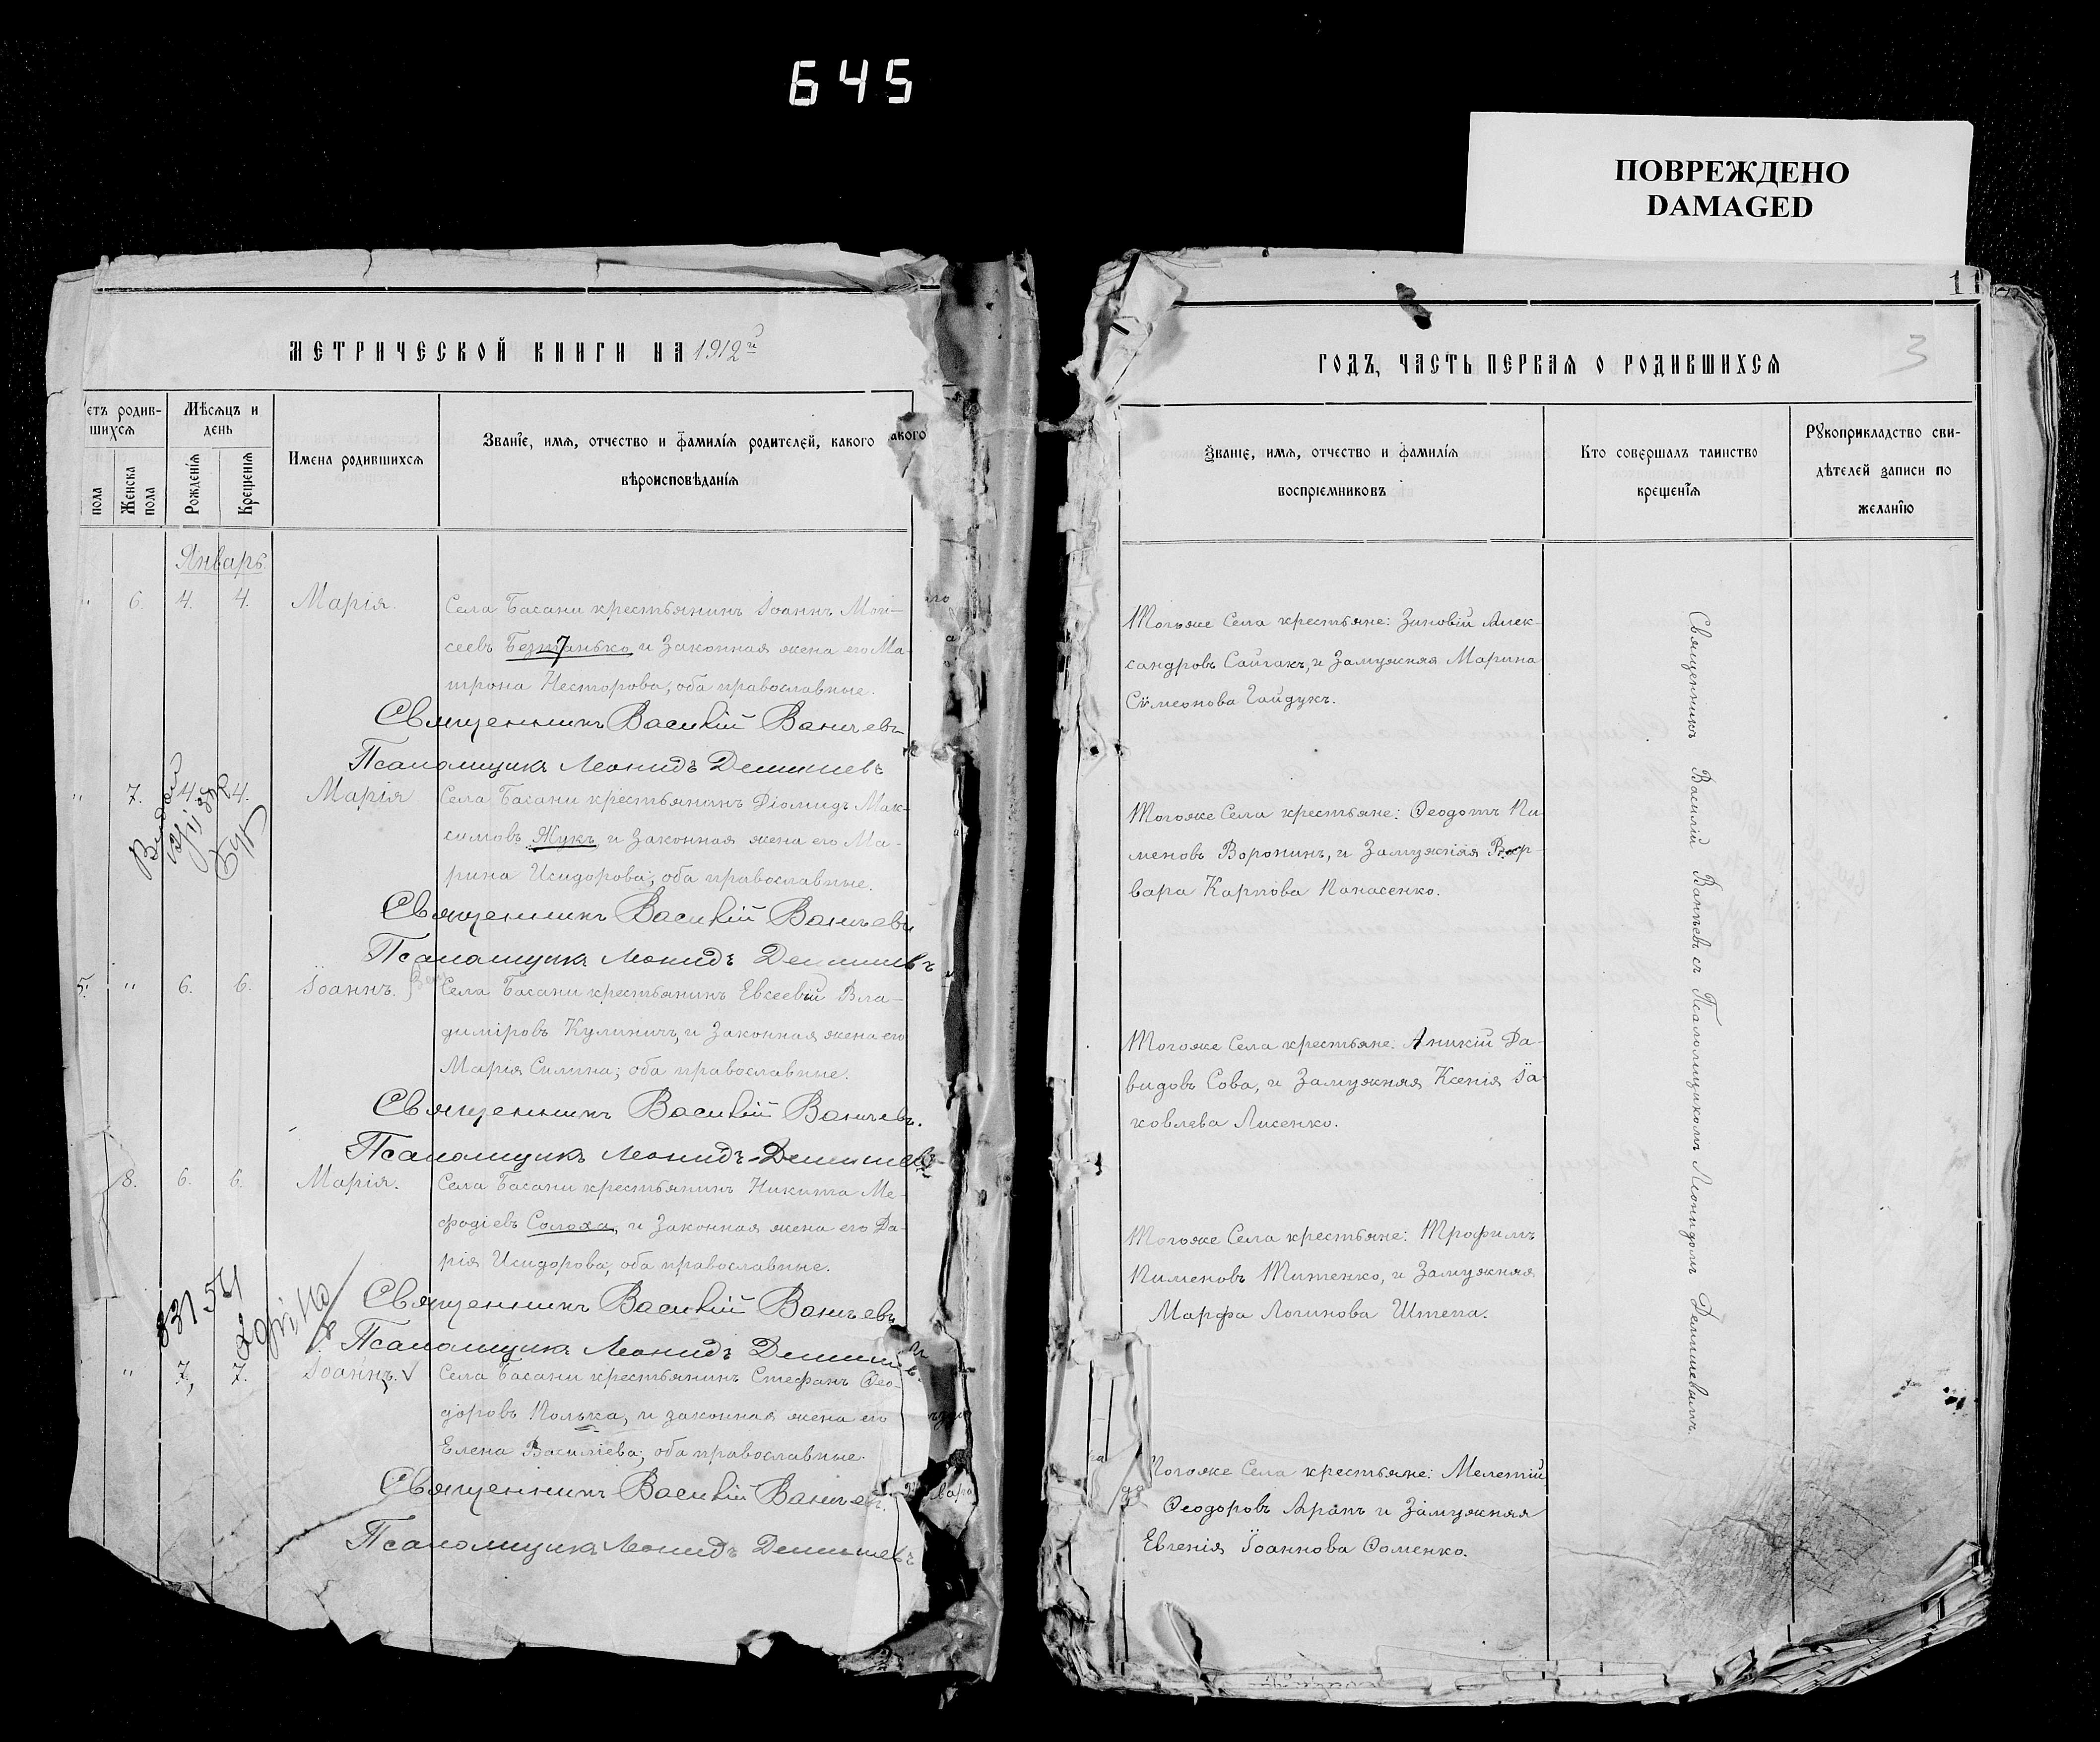 645
ПОВРЕЖДЕНО
DAMAGED
11
3
МЕТРИЧЕСКОЙ КНИГИ НА 1912й
ГОДЪ, ЧАСТЬ ПЕРВАЯ О РОДИВШИХСЯ
етъ родив-
шихся
Мѣсяцъ и
день
пола
Женска
пола
Рожденія
Крещенія
Имена родившихся
Званіе, имя, отчество и фамилія родителей, какого
вѣроисповѣданія
акого
Званіе, имя, отчество и фамилія
воспріемниковъ
Кто совершалъ таинство
крещенія
Рукоприкладство сви-
дѣтелей записи по
желанію
Январь.
" 6. 4. 4. Марія.
Села Басани крестьянинъ Іоаннъ Мои-
сеевъ и Законная жена его Ма-
трона Несторова, оба православные.
Священникъ Василій Ваничевъ
Псаломщикъ Леонидъ Демишевъ
" 7. 4. 4. Марія
Села Басани крестьянинъ Діомидъ Мак-
симовъ Жукъ, и Законная жена его Ма-
рина Исидорова, оба православные.
Священникъ Василій Ваничевъ
Псаломщикъ Леонидъ Демишевъ
5. " 6. 6. Іоаннъ.
Села Басани крестьянинъ Евсевій Вла-
диміровъ Кулиничъ, и Законная жена его
Марія Силина; оба православные.
Священникъ Василій Ваничевъ.
Псаломщикъ Леонидъ Демишевъ
8. 6. 6. Марія.
Села Басани крестьянинъ Никита Ме-
фодіевъ Солоха, и Законная жена его Да-
рія Исидорова, оба православные.
Священникъ Василій Ваничевъ
Псаломщикъ Леонидъ Демишевъ
" 7. 7. Іоаннъ. V
Села Басани крестьянинъ Стефанъ Ѳео-
доровъ Полька, и законная жена его
Елена Василіева; оба православные.
Священникъ Василій Ваничевъ.
Псаломщикъ Леонидъ Демишевъ
Тогоже Села крестьяне: Зиновій Алек-
сандровъ Сайгакъ, и Замужняя Марина
Сѵмеонова Гайдукъ.
Тогоже Села крестьяне: Ѳеодотъ Пи-
меновъ Воронинъ, и Замужняя Вар-
вара Карпова Панасенко.
Тогоже Села крестьяне: Аникій Да-
видовъ Сова, и Замужняя Ксенія Іа-
ковлева Лисенко.
Тогоже Села крестьяне: Трофимъ
Пименовъ Титенко, и Замужняя
Марфа Логинова Штепа.
Тогоже Села крестьяне: Мелетій
Ѳеодоровъ Арапъ и Замужняя
Евгенія Іоаннова Ѳоменко.
Священникъ Василій Ваничевъ съ Псаломщикомъ Леонидомъ Демишевымъ.